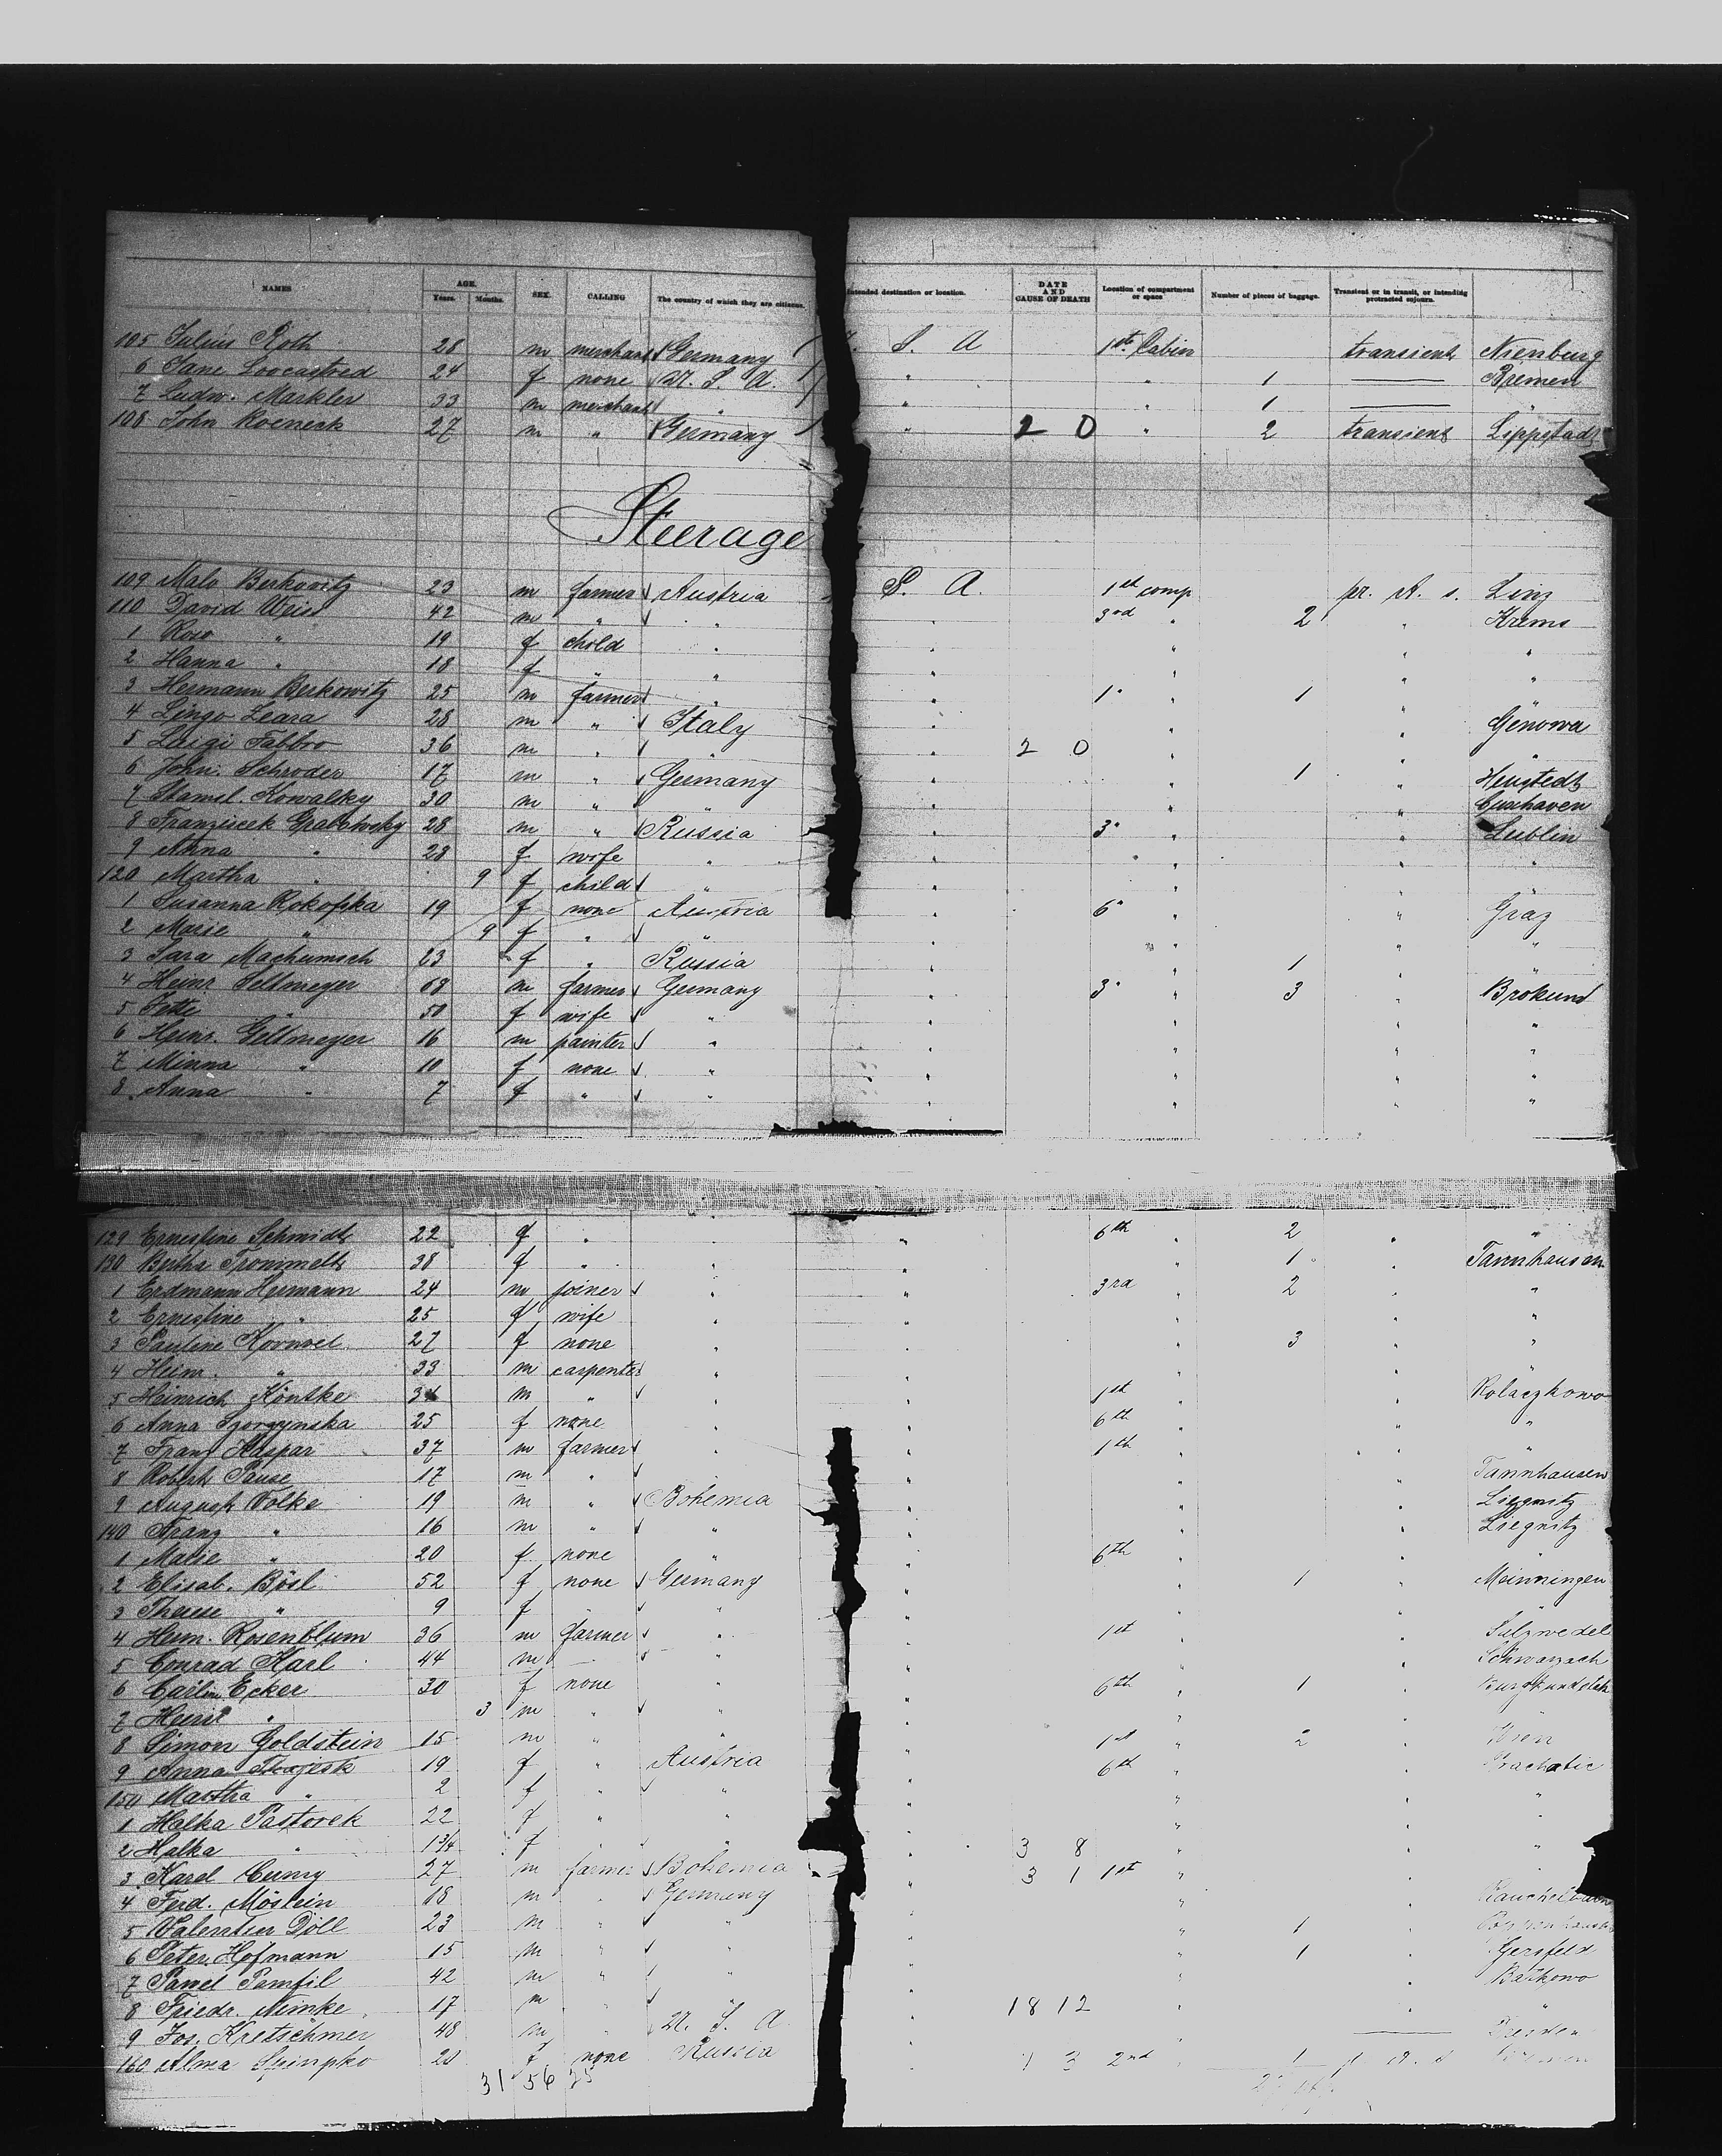 NAMES AGE. Years. Months. SEX. CALLING The country of which they are citizens. Intended destination or location. DATE AND CAUSE OF DEATH Location of compartment or space Number of pieces of baggage. Transient or in transit, or intending protracted sojourn.
105 Julius Roth 28 m merchant Germany S. A 1st Cabin transient Nienburg
6 Jane 24 f none U. S. A. " " 1 Bremen
7 Ludw. Markler 33 m merchant " " " 1 "
108 John Koeneck 27 m " Germany " 2 0 " 2 transient Lippstadt
Steerage
109 Malo Berkovitz 23 m farmer Austria S. A. 1st comp pr. A. s. Linz
110 David Weis 42 m " " " 3rd " 2 " Krems
1 Rosa " 19 f child " " " " "
2 Hanna " 18 f " " " " " "
3 Hermann Berkowitz 25 m farmer " " 1" " 1 "
4 Lingo Zeara 28 m " Italy " " " Genowa
5 Luigi Fabbro 36 m " " " 2 0 " " "
6 John. Schroder 17 m " Germany " " 1 " Heustedt
7 Stamsl. Kowalky 30 m " " " " " Cuxhaven
8 Franziscek Grabowsky 28 m " Russia " 3" " " Lublin
9 Anna " 28 f wife " " " " "
120 Martha " 9 f child " " " " "
1 Susanna Rokofska 19 f none Austria " 6" " " Graz
2 Marie " 9 f " " " " " "
3 Sara Machumsch 23 f " Russia " " 1 " "
4 Heinr Seltmeyer 68 m farmer Germany " 3" " 3 " Brokund
5 Jette " 50 f wife " " " " "
6 Heinr. Geltmeyer 16 m painter " " " " "
7 Minna " 10 f none " " " " "
8 Anna " 7 f " " " " " "
129 Ernestine Schmidt 22 f " " " 6th " 2 " "
130 Bertha Trommelt 38 f " " " " 1 " Tannhausen
1 Erdmann Hermann 24 m joiner " " 3rd " 2 " "
2 Ernestine " 25 f wife " " " " "
3 Pauline 27 f none " " " 3 " "
4 Heinr. " 33 m carpenter " " " " "
5 Heinrich Köntke m " " " 1st " " Kolaczkowo
6 Anna Szorzynska 25 f none " " 6th " " "
7 Franz Kaspar 37 m farmer " " 1th " " "
8 Robert Pause 17 m " " " " " Tannhausen
9 August Volke 19 m " Bohemia " " " Liegnitz
140 Franz " 16 m " " " " " Liegnitz
1 Marie " 20 f none " " 6th " " "
2 Elisab. Bösl 52 f none Germany " " 1 " Meinningen
3 Therese " 9 f " " " " " "
4 Herm. Rosenblum 36 m farmer " " 1st " " Salzwedel
5 Conrad Karl 44 m " " " " " Schwarzach
6 Carlin Ecker 30 f none " " 6th " 1 "
7 Heinr " 3 m " " " " " "
8 Simon Goldstein 15 m " " " 1st " 2 " Wien
9 Anna 19 f " Austria " 6th " " Prachatic
150 Martha " 2 f " " " " " "
1 Halka Pastorek 22 f " " " " " "
2 Halka " 1 3/4 f " " " 3 8 " " "
3 Karel Cerny 27 m farmer Bohemia " 3 1 1st " " "
4 Ferd. Möslein 18 m " Germany " " "
5 Valentin Döll 23 m " " " " 1 "
6 Peter Hofmann 15 m " " " " 1 " Gersfeld
7 Pawel Pamfil 42 m " " " " " Batkowo
8 Friedr. Nimke 17 m " " " 18 12 " " "
9 Jos. Kretschmer 48 m " U. S. A " " Dresden
160 Alma 20 f none Russia " 1 3 2nd " 1 p. A. s Bremen
31 56 25